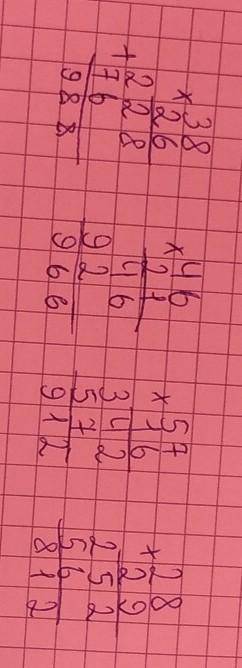 38
×26
+228
76
988
46
×21
46
92
966
57
×16
342
57
912
28
×29
252
56
812